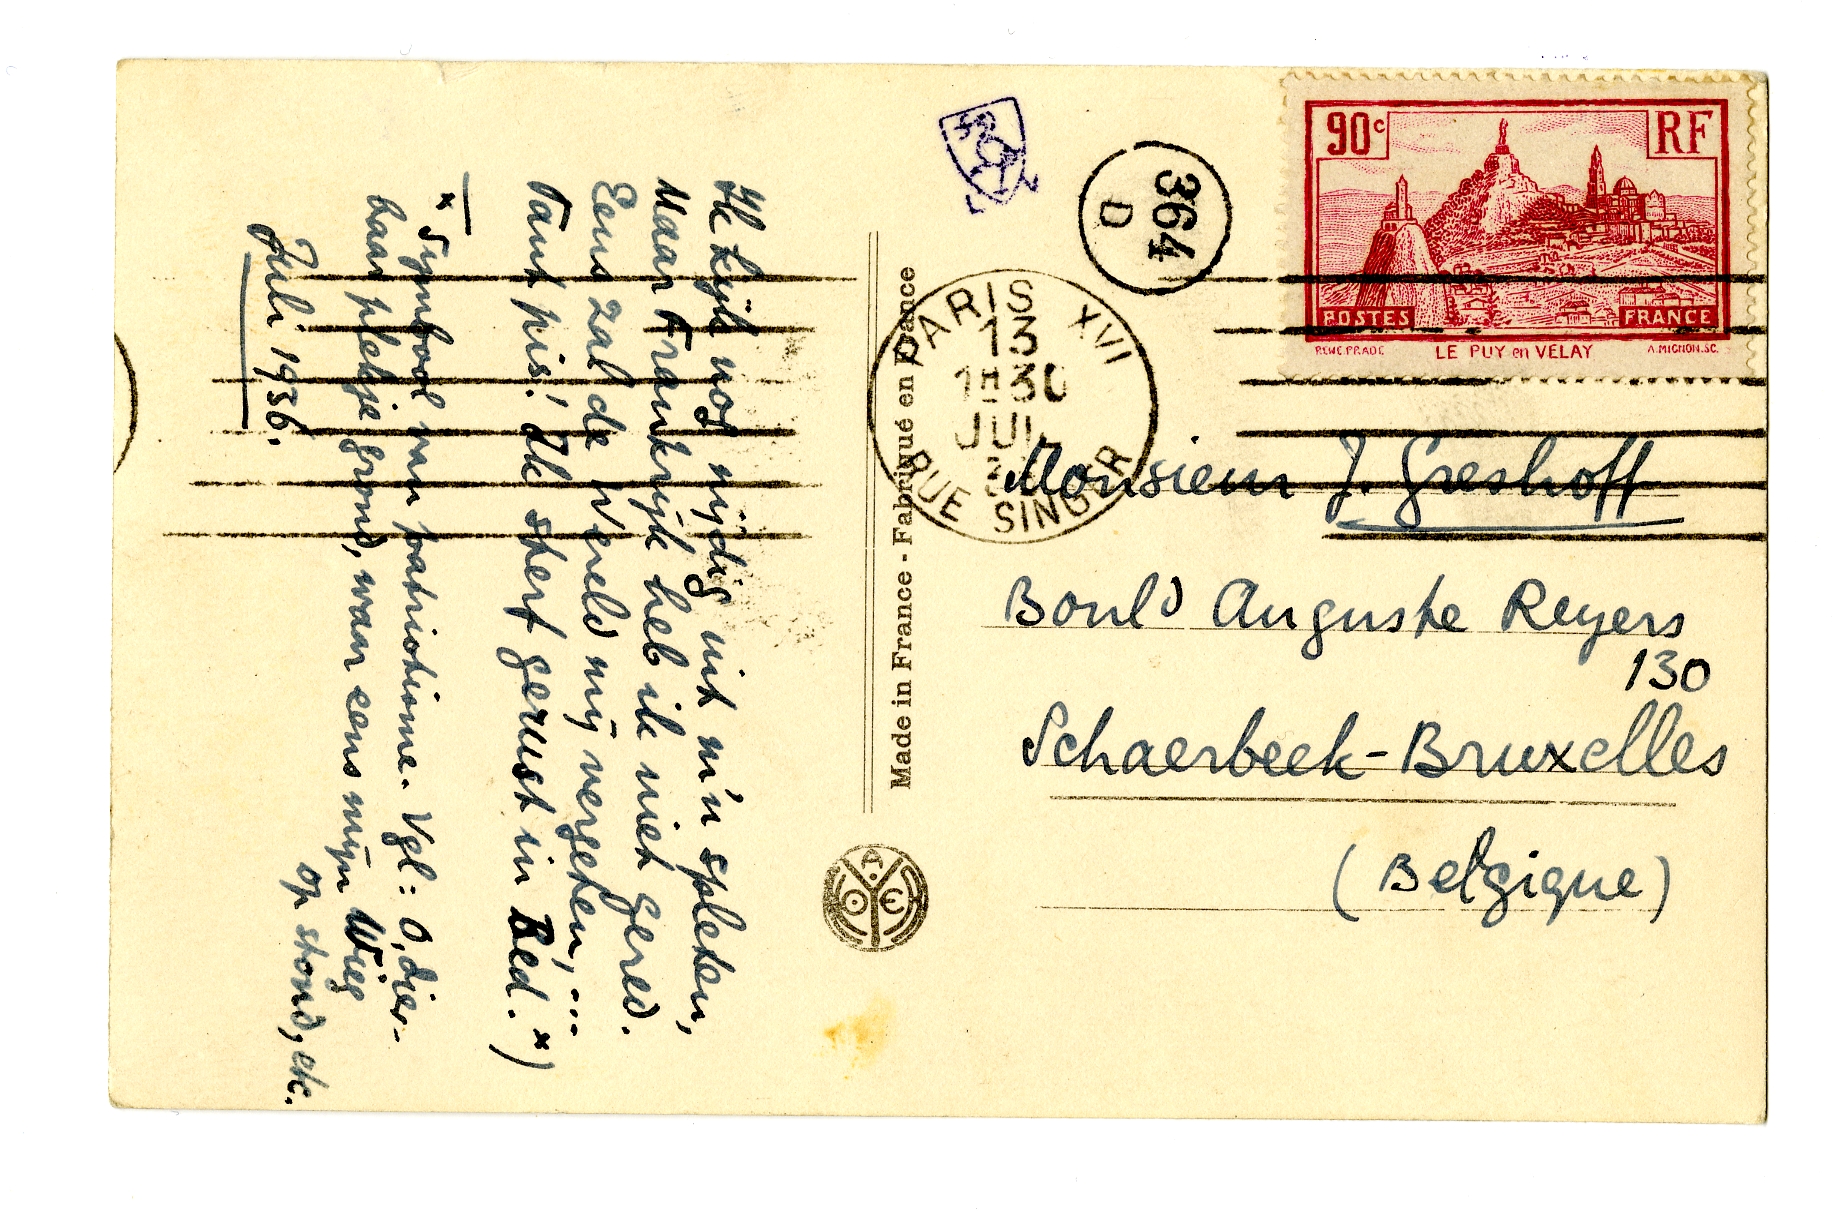 Ik kijk nog nijdig uit m'n spleten,
Maar Frankrijk heb ik niet gered.
Eens zal de Wereld mij vergeten, ...
Tant pis! Ik sterf gerust in Bed. *)
* Symbool van patriotisme. Vgl: O, dier-
baar plekje grond, waar eens mijn Wieg
op stond, etc.
Juli 1936.
Made in France - Fabriqué en France
A. O C
364
D
PARIS XVI
13
1H30
JUIL
RUE SINGER
90c
RF
POSTES
FRANCE
RENÉ.PRADE
LE PUY en VELAY
A.MIGNON.SC.
Monsieur J. Greshoff
Bould Auguste Reyers
130
Schaerbeek-Bruxelles
(Belgique)